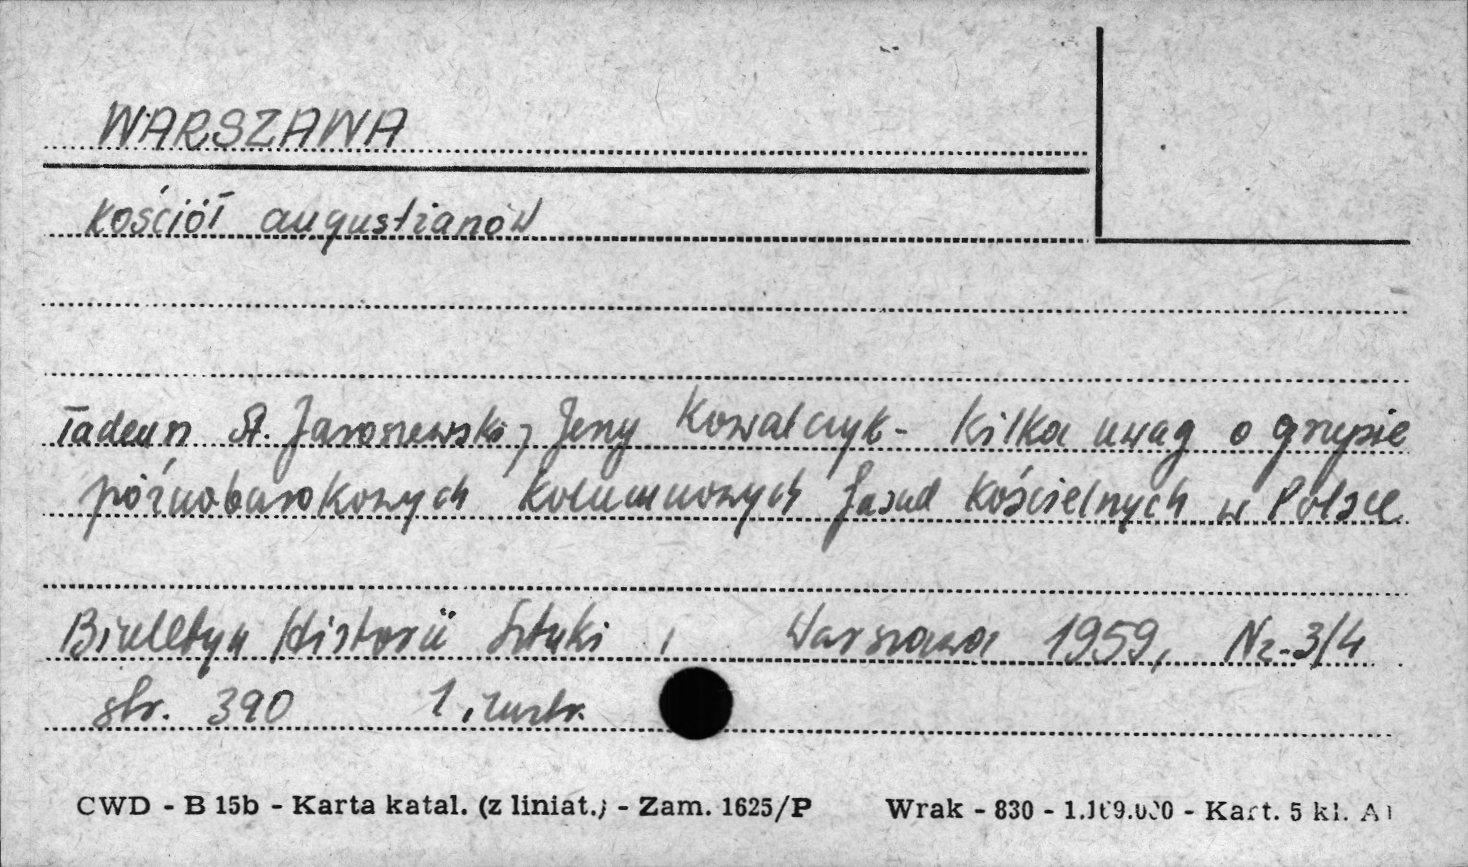 WARSZAWA
kościół augustianów
Tadeusz St. Jaroszewski, Jerzy Kowalczyk - Kilka uwag o grupie
późnobarokowych kolumnowych fasad kościelnych w Polsce
Biuletyn Historii Sztuki, Warszawa 1959, Nr. 3/4
str. 390 1
CWD - B 15b - Karta katal. (z liniat.) - Zam. 1625/P Wrak - 830 - Kart. 5 kl.